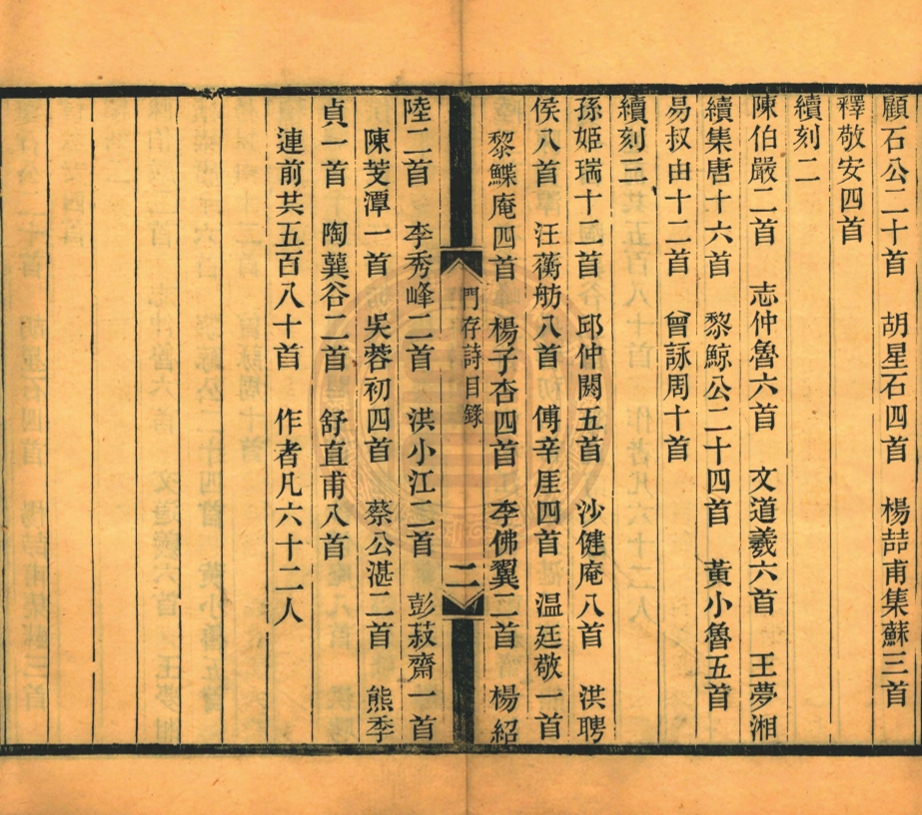 顧石公二十首 胡星石四首 楊喆甫集蘇三首
釋敬安四首
續刻二
陳伯嚴二首 志仲魯六首 文道羲六首 王夢湘
續集唐十六首 黎鯨公二十四首 黃小魯五首
易叔由十二首 曾詠周十首
續刻三
孫姬瑞十二首 邱仲閼五首 沙健庵八首 洪聘
侯八首 汪蘅舫八首 傅辛厓四首 温廷敬一首
黎鰈庵四首 楊子杏四首 李佛翼二首 楊紹
門存詩目錄 二
陸二首 李秀峰二首 洪小江二首 彭菽齋一首
陳芰潭一首 吳蓉初四首 蔡公湛二首 熊季
貞一首 陶龔谷二首 舒直甫八首
連前共五百八十首 作者凡六十二人